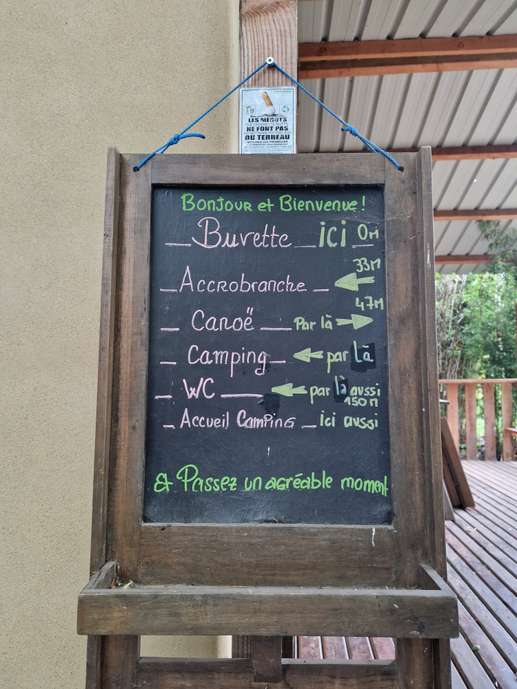 LES MEGOTS
NE FONT PAS
DU TERREAU
Bonjour et Bienvenue !
Buvette ici 0M
Accrobranche 33M
Canoë Par là 47M
Camping par là
WC par là aussi
150M
Accueil Camping Ici aussi
& Passez un agréable moment